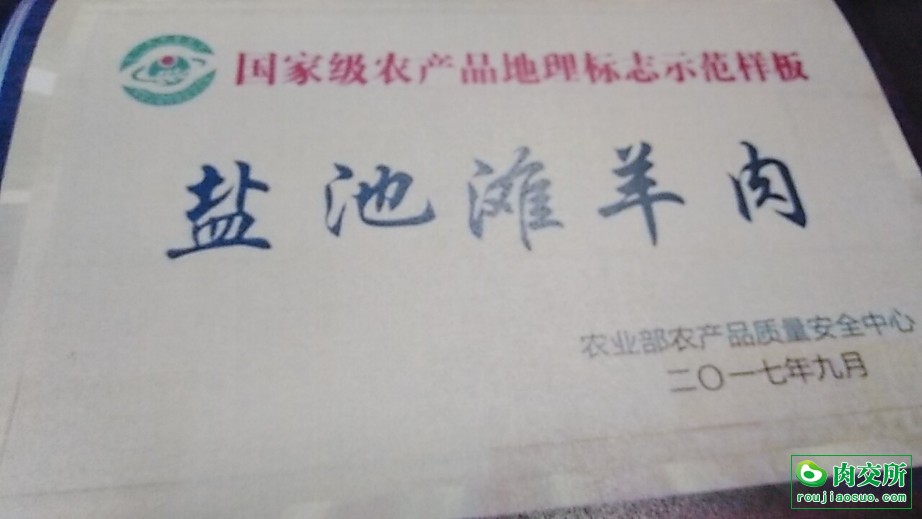 国家级农产品地理标志示范样板
盐池滩羊肉
农业部农产品质量安全中心
二〇一七年九月
肉交所
roujiaosuo.com